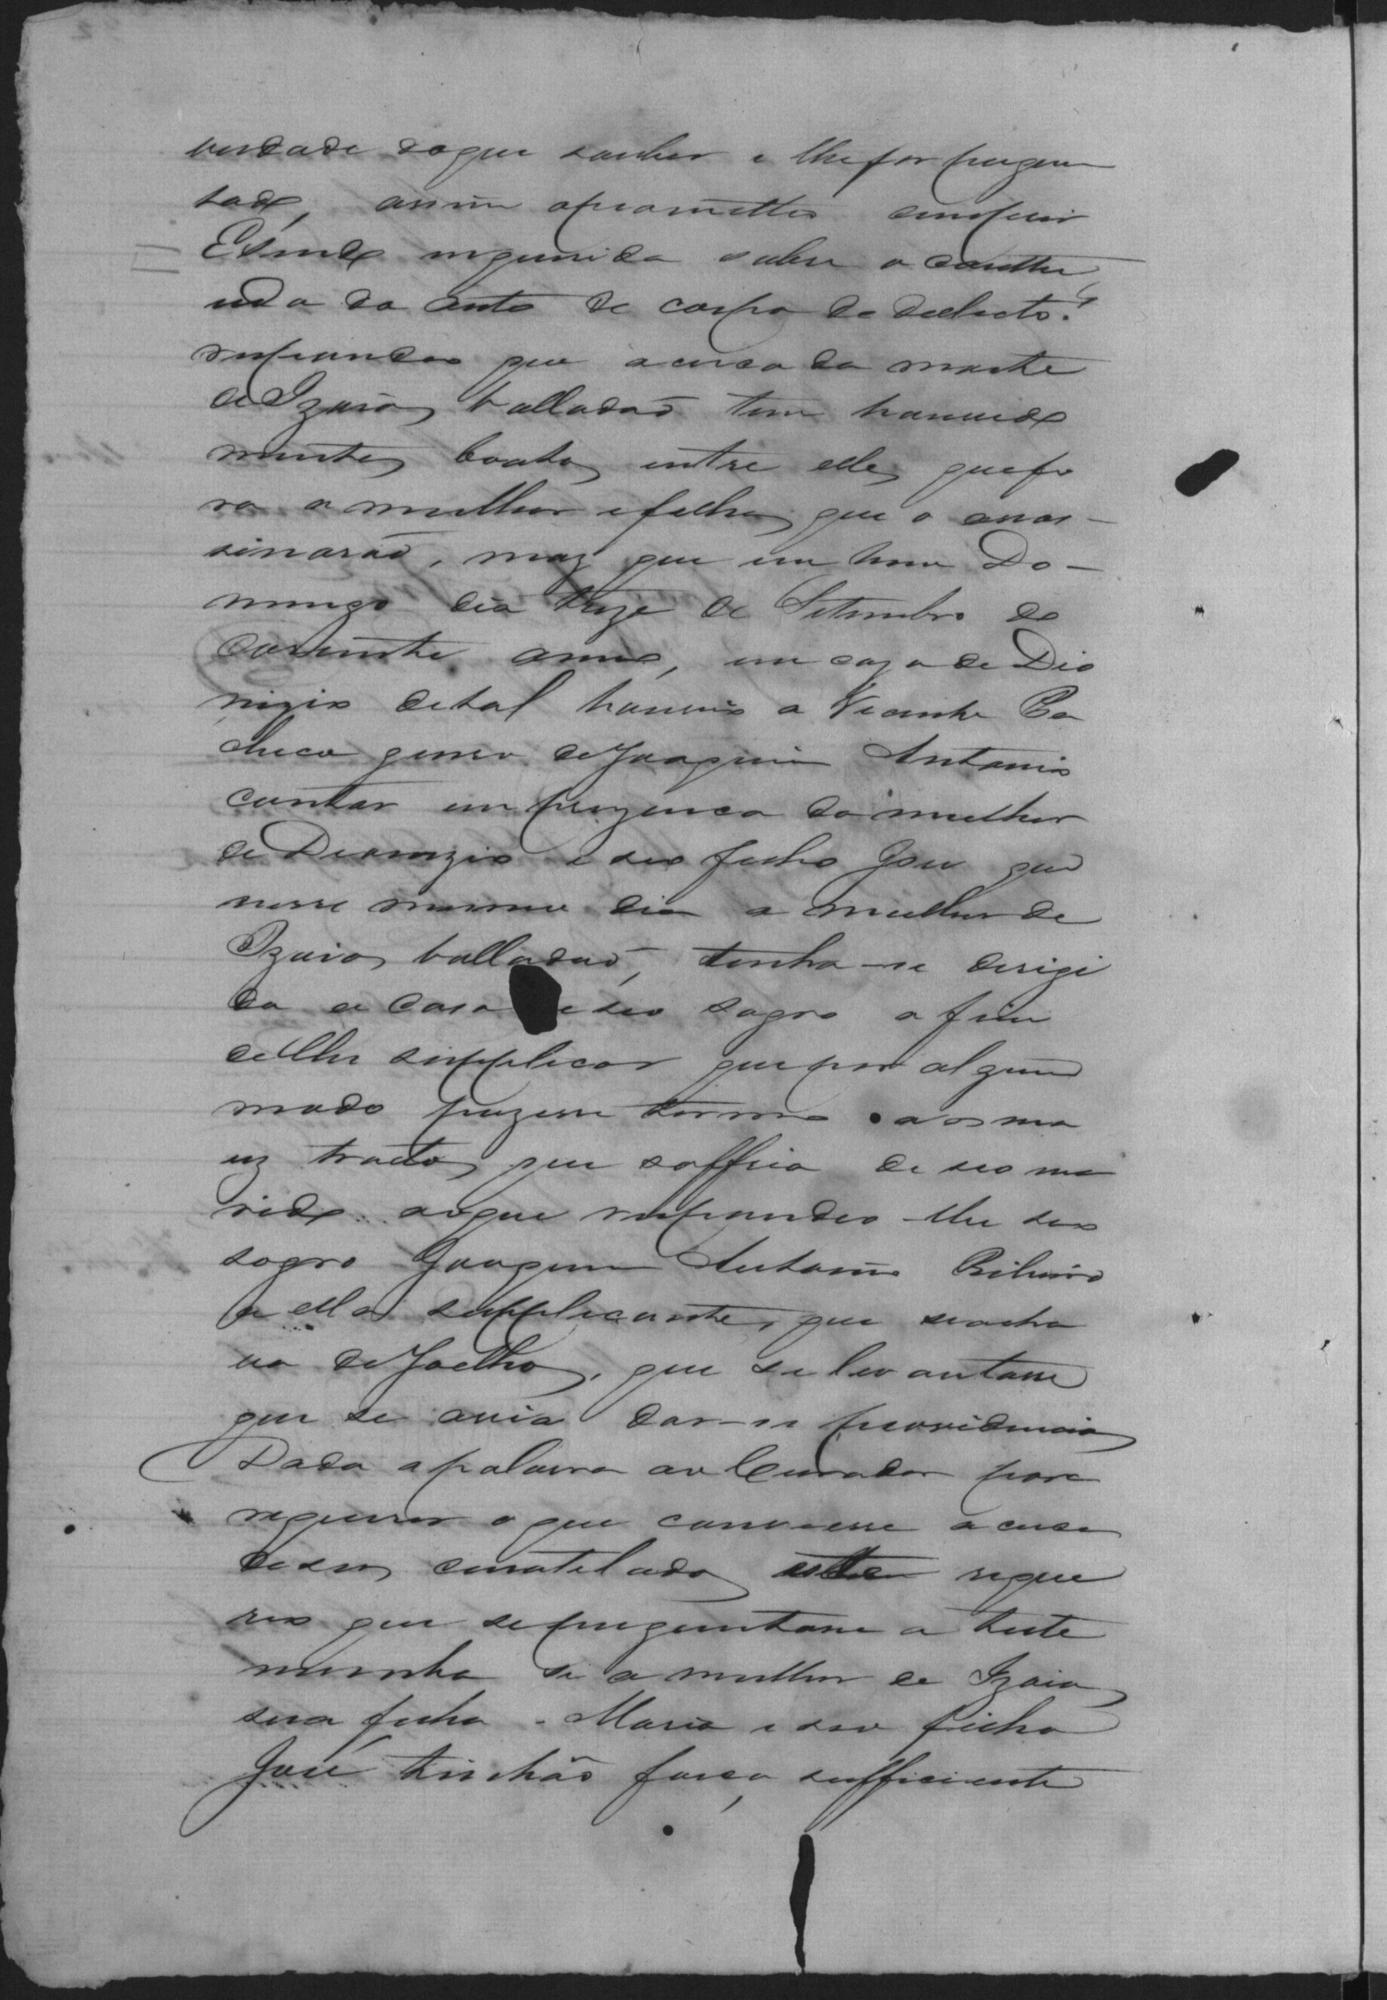 verdade doque souber e lhe for pergun
tado, assim oprometteo cumprir
E sendo inquirida sobre o conthe
udo do auto de corpo de delicto?
respondeo que acerca da morte
de Izaias Valladaõ tem havido
muitos boatos entre elles que fo
ra a mulher e filhos que o assas-
sinaraõ, maz que em hum Do-
mingo dia treze de Setembro do
corrente anno, em caza de Dio
nizio de tal houvio a Vicente Pa
checo genro de Joaquim Antonio
contar em prezença da mulher
de Dionizio e seo filho José que
nesse mesmo dia a mulher de
Izaias Valladaõ, tinha-se dirigi
do a casa de seo sogro a fim
de lhe supplicar que por algum
modo puzesse termo aos ma
us tractos que soffria de seo ma
rido aoque respondeo-lhe seo
sogro Joaquim Antonio Ribeiro
a ella supplicante, que se acha
va de Joelhos, que se levantasse
que se avia dar-se providencias
Dada a palavra ao Curador para
requerer o que conviesse a cerca
de seos curatelados este reque
reo que se perguntasse a teste
munha se a mulher de Izaias
sua filha Maria e seo filho
José tinhaõ força sufficiente